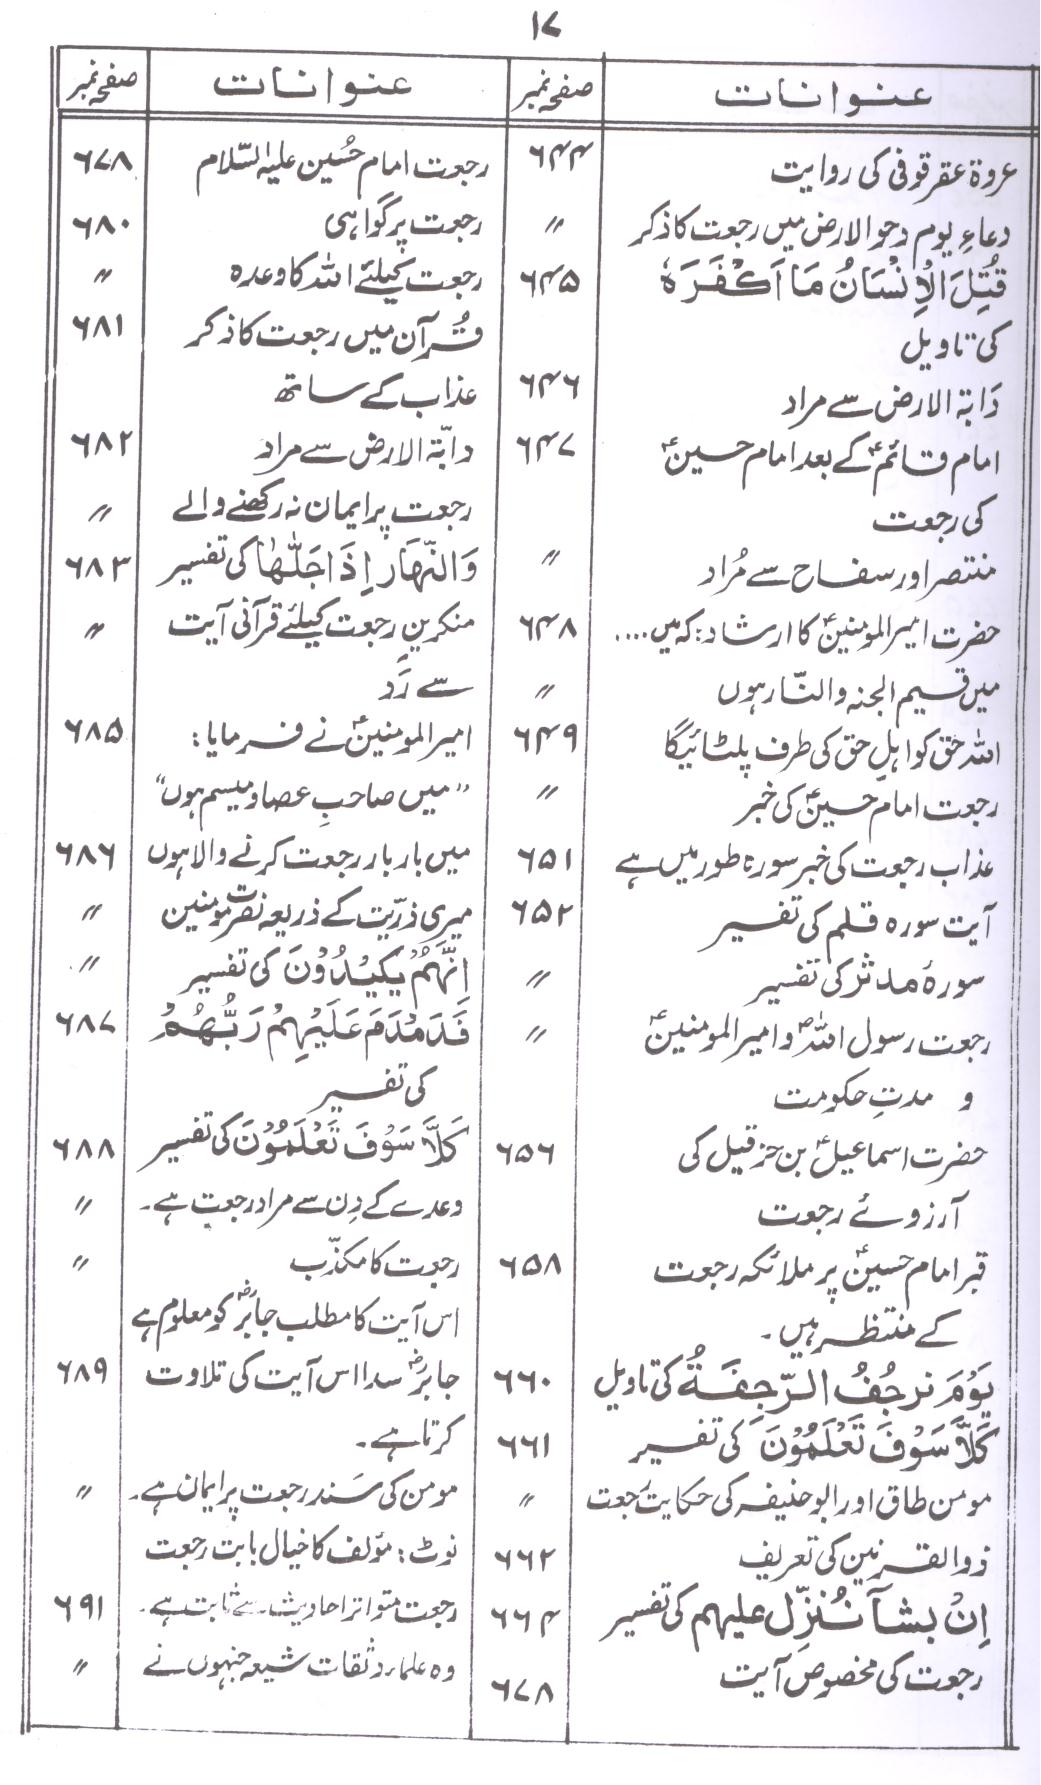 ۱۷
عنوانات صفحہ نمبر
عروۃ عقرقوفی کی روایت ۶۴۴
دعاءِ یوم دحو الارض میں رجعت کا ذکر 〃
قُتِلَ الْاِنْسَانُ مَا اَكْفَرَهٗ ۶۴۵
کی تاویل
دَابۃ الارض سے مراد ۶۴۶
امام قائمؑ کے بعد امام حسینؑ ۶۴۷
کی رجعت
منتصر اور سفاح سے مُراد 〃
حضرت امیرالمومنینؑ کا ارشاد: کہ میں .... ۶۴۸
میں قسیم الجنہ والنّار ہوں 〃
اللہ حق کو اہلِ حق کی طرف پلٹائیگا ۶۴۹
رجعت امام حسینؑ کی خبر 〃
عذاب رجعت کی خبر سورہ طور میں ہے ۶۵۱
آیت سورہ قلم کی تفسیر ۶۵۲
سورۂ مدثر کی تفسیر 〃
رجعت رسول اللہؐ و امیرالمومنینؑ 〃
و مدتِ حکومت
حضرت اسماعیلؑ بن حزقیل کی ۶۵۶
آرزوئے رجعت
قبر امام حسینؑ پر ملائکہ رجعت ۶۵۸
کے منتظر ہیں۔
يَوْمَ تَرجُفُ الرَّجِفَةُ کی تاویل ۶۶۰
كَلَّا سَوْفَ تَعْلَمُوْنَ کی تفسیر ۶۶۱
مومن طاق اور ابو حنیفہ کی حکایت رجعت 〃
ذوالقرنین کی تعریف ۶۶۲
اِنْ نشآ نُنَزِّل علیہم کی تفسیر ۶۶۴
رجعت کی مخصوص آیت ۶۷۸
عنوانات صفحہ نمبر
رجعت امام حُسین علیہ السّلام ۶۷۸
رجعت پر گواہی ۶۸۰
رجعت کیلئے اللہ کا وعدہ 〃
قُرآن میں رجعت کا ذکر ۶۸۱
عذاب کے ساتھ
دابّۃ الارض سے مراد ۶۸۲
رجعت پر ایمان نہ رکھنے والے 〃
وَالنَّهَارِ اِذَا جَلّٰهَا کی تفسیر ۶۸۳
منکرینِ رجعت کیلئے قرآنی آیت 〃
سے رَد
امیرالمومنینؑ نے فرمایا: ۶۸۵
"میں صاحبِ عصا و میسم ہوں"
میں بار بار رجعت کرنے والا ہوں ۶۸۶
میری ذرّیت کے ذریعہ نصرت مومنین 〃
اِنَّهُمْ يَكِيْدُوْنَ کی تفسیر 〃
فَدَمْدَمَ عَلَيْهِمْ رَبُّهُمْ ۶۸۷
کی تفسیر
كَلَّا سَوْفَ تَعْلَمُوْنَ کی تفسیر ۶۸۸
وعدے کے دِن سے مراد رجعت ہے۔ 〃
رجعت کا مکذّب 〃
اس آیت کا مطلب جابرؓ کو معلوم ہے
جابرؓ سدا اس آیت کی تلاوت ۶۸۹
کرتا ہے۔
مومن کی سَند رجعت پر ایمان ہے۔ 〃
نوٹ: مؤلف کا خیال بابت رجعت
رجعت متواتر احادیث سے ثابت ہے۔ ۶۹۱
وہ علماء و ثقات شیعہ جنہوں نے 〃